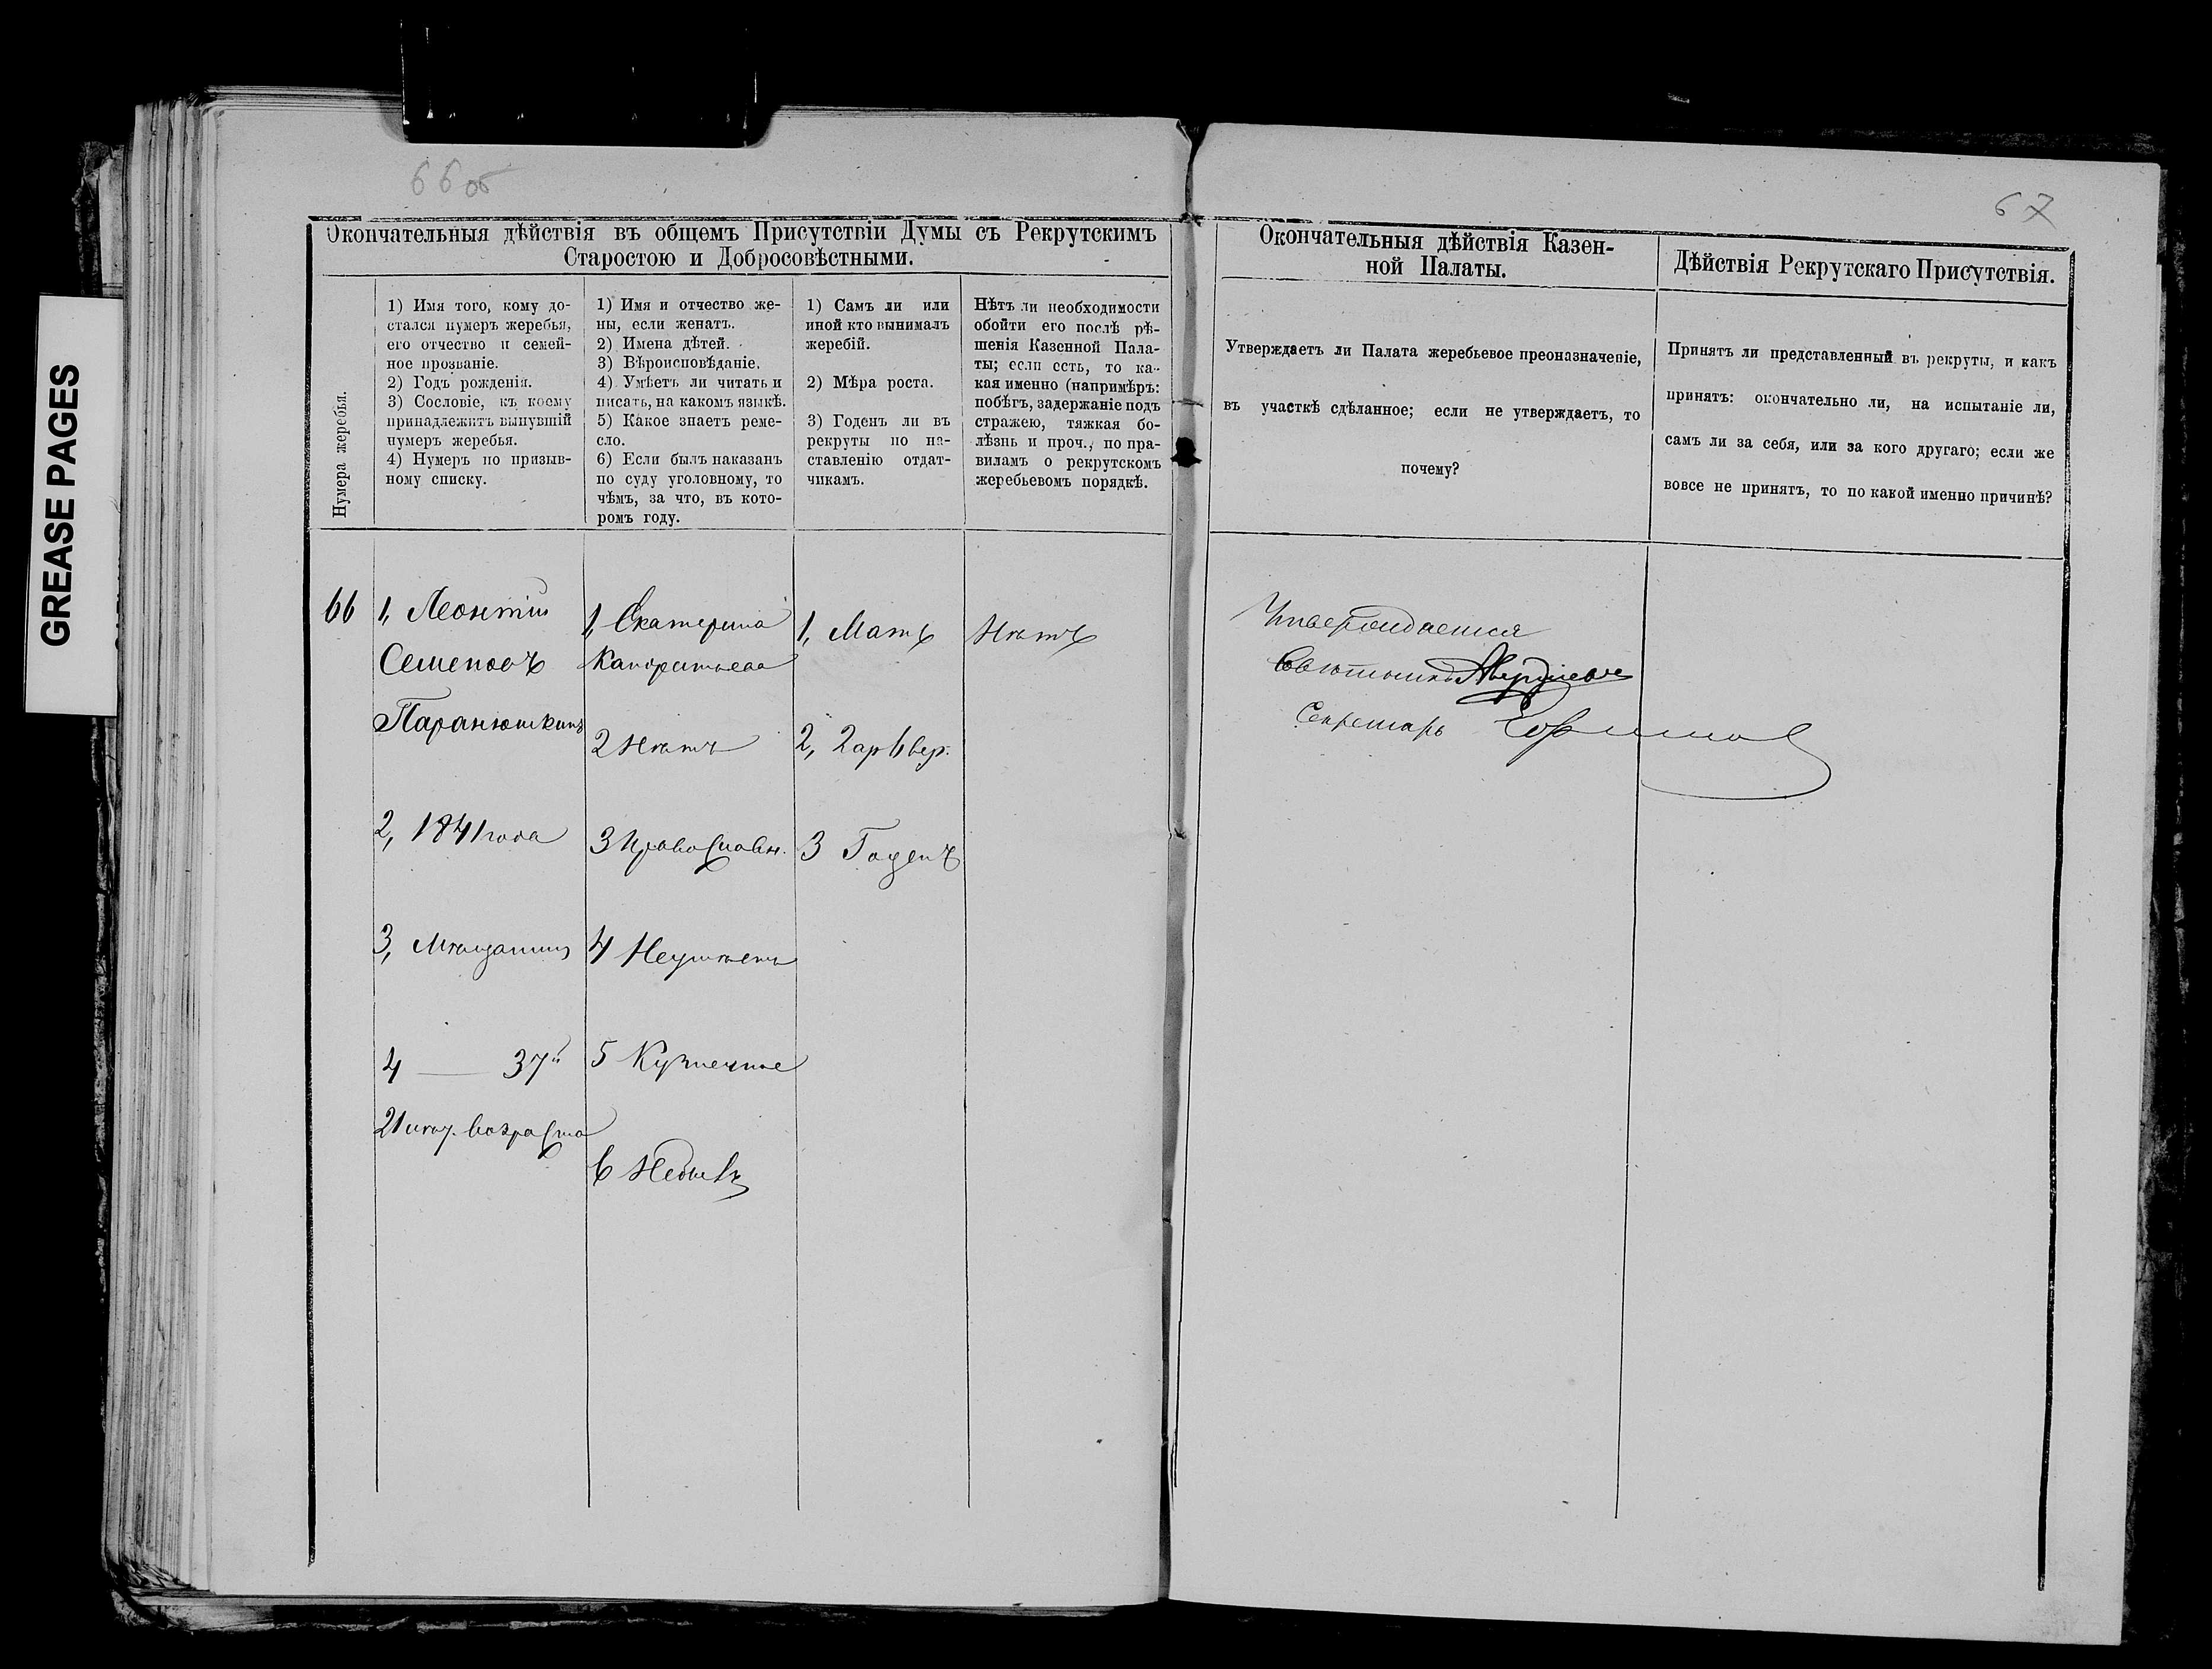 GREASE PAGES
66 об
67
Окончательныя дѣйствія въ общемъ Присутствіи Думы съ Рекрутскимъ
Старостою и Добросовѣстными.
Нумера жеребья.
1) Имя того, кому до-
стался нумеръ жеребья,
его отчество и семей-
ное прозваніе.
2) Годъ рожденія.
3) Сословіе, къ коему
принадлежитъ вынувшій
нумеръ жеребья.
4) Нумеръ по призыв-
ному списку.
1) Имя и отчество же-
ны, если женатъ.
2) Имена дѣтей.
3) Вѣроисповѣданіе.
4) Умѣетъ ли читать и
писать, на какомъ языкѣ.
5) Какое знаетъ реме-
сло.
6) Если былъ наказанъ
по суду уголовному, то
чѣмъ, за что, въ кото-
ромъ году.
1) Самъ ли или
иной кто вынималъ
жеребій.
2) Мѣра роста.
3) Годенъ ли въ
рекруты по на-
ставленію отдат-
чикамъ.
Нѣтъ ли необходимости
обойти его послѣ рѣ-
шенія Казенной Пала-
ты; если есть, то ка-
кая именно (напримѣръ:
побѣгъ, задержаніе подъ
стражею, тяжкая бо-
лѣзнь и проч., по пра-
виламъ о рекрутскомъ
жеребьевомъ порядкѣ.
Окончательныя дѣйствія Казен-
ной Палаты.
Утверждаетъ ли Палата жеребьевое преоназначеніе,
въ участкѣ сдѣланное; если не утверждаетъ, то
почему?
Дѣйствія Рекрутскаго Присутствія.
Принятъ ли представленный въ рекруты, и какъ
принятъ: окончательно ли, на испытаніе ли,
самъ ли за себя, или за кого другаго; если же
вовсе не принятъ, то по какой именно причинѣ?
66
1, Леонтій
Семеновъ
Паранюшкинъ
2, 1841 года
3, Мѣщанинъ
4 — 37й
21 лѣт. возраста
1, Екатерина
2 Нѣтъ
3 Православн.
4 Неумѣетъ
5 Кузнечное
6 Небылъ
1, Мать
2, 2 ар 6 вер.
3 Годенъ
Нѣтъ
Утверждается
Совѣтникъ
Секретарь